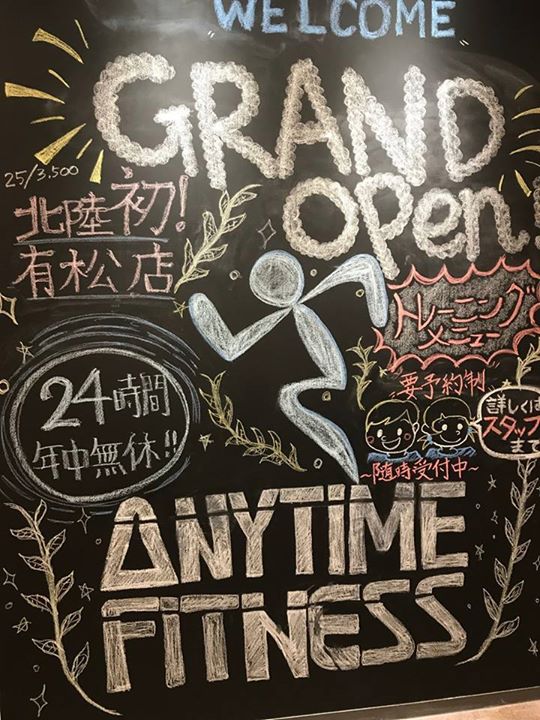 WELCOME
GRAND
open
25/3,500
北陸初!
有松店
トレーニング
メニュー
要予約制
24時間
年中無休!!
詳しくは
スタッフ
まで
~随時受付中~
ANYTIME
FITNESS